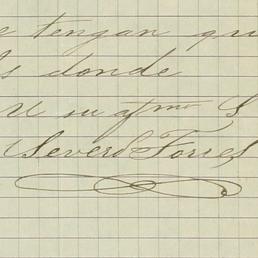 e tengan qu
ls donde
su afmo S
Severo Torres